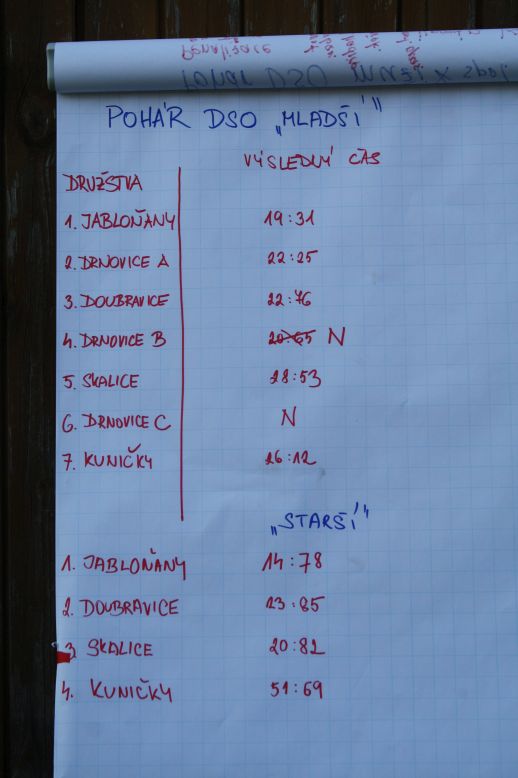 POHÁR DSO „MLADŠÍ"
VÝSLEDNÝ ČAS
DRUŽSTVA
1. JABLOŇANY 19:31
2. DRNOVICE A 22:25
3. DOUBRAVICE 22:76
4. DRNOVICE B 20:65 N
5. SKALICE 28:53
6. DRNOVICE C N
7. KUNIČKY 26:12
„STARŠÍ"
1. JABLOŇANY 14:78
2. DOUBRAVICE 23:85
3 SKALICE 20:82
4. KUNIČKY 51:69